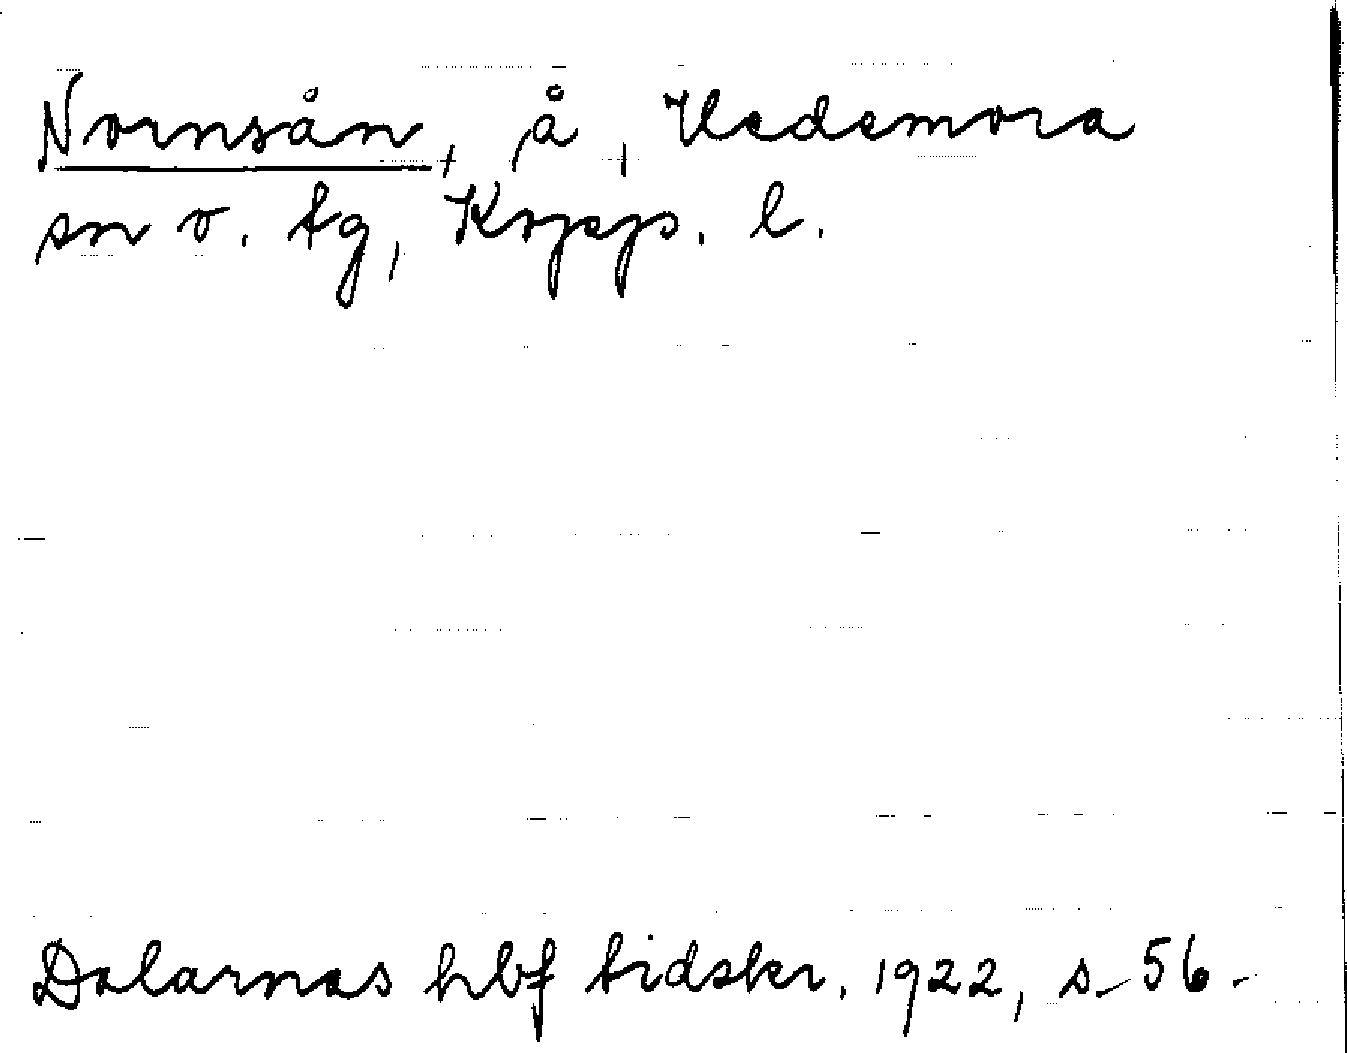 Nornsån, å, Hedemora
sn o. tg, Kopp. l.
Dalarnas hbf tidskr. 1922, s. 56.